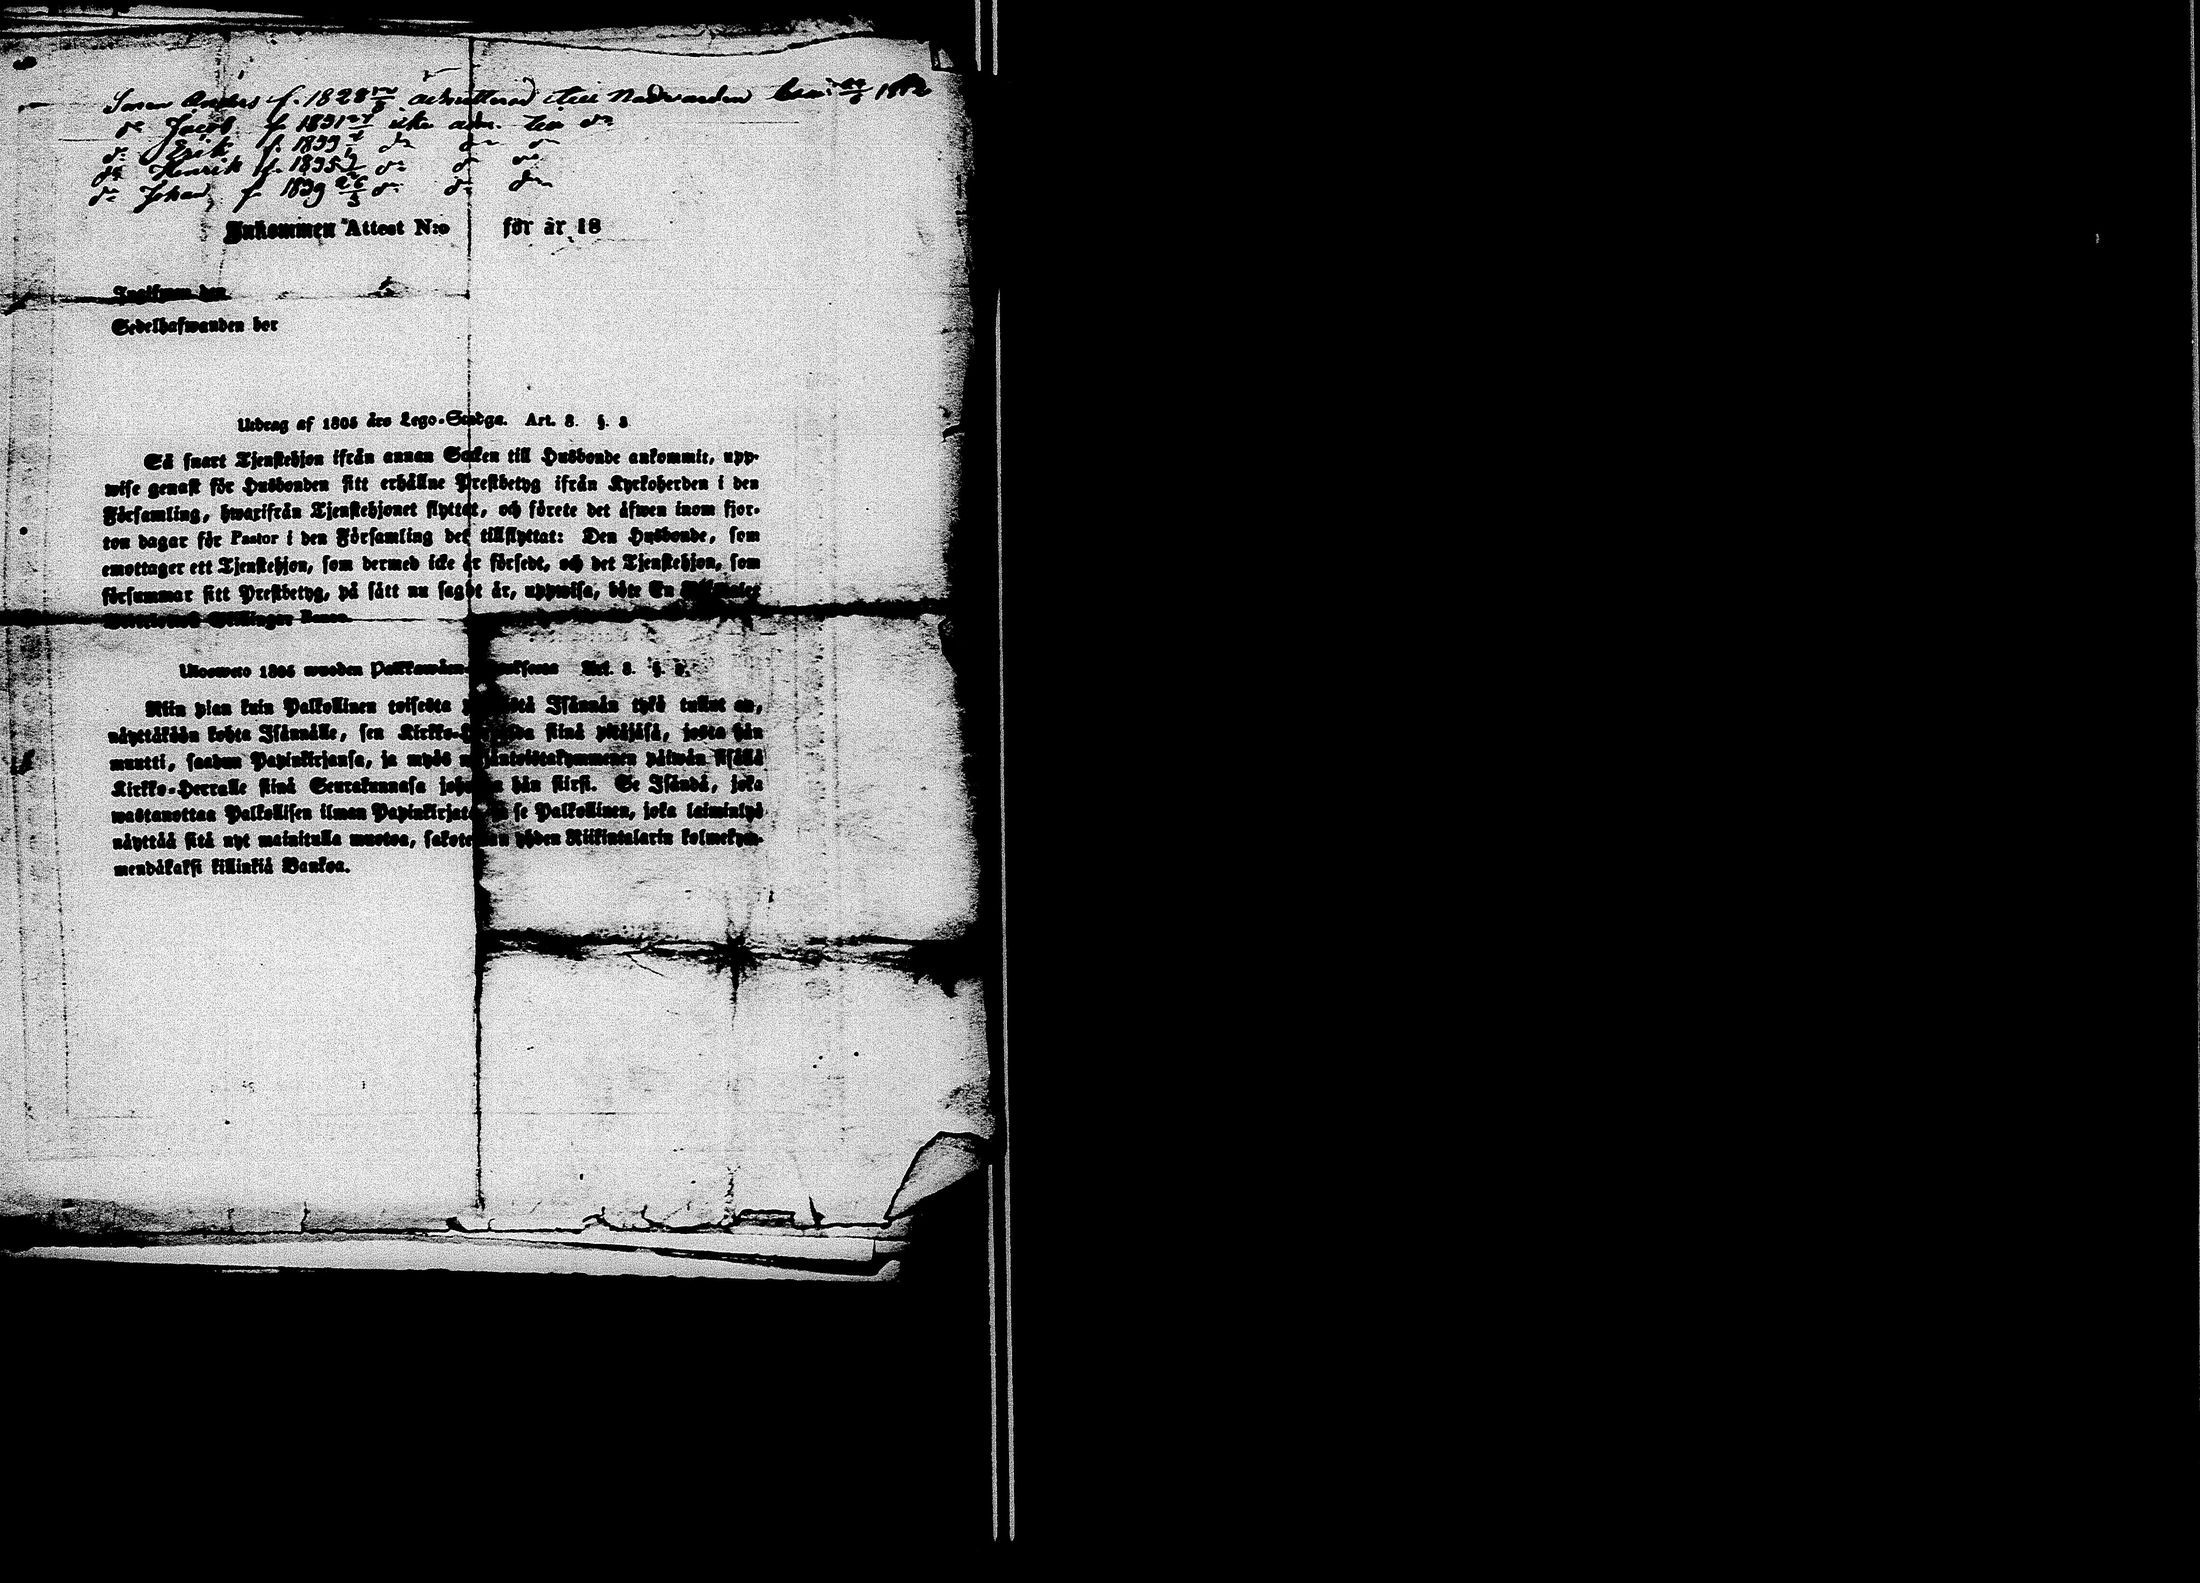 Sonen Anders f. 1828 12/8 admitterad till Nattvarden
do Jacob f. 1831 icke adm. till do
do Erik f. 1833 do do do
do Henrik f. 1835 do do do
do Johan f. 1839 26/3 do do do
Inkommen Attest N:o för år 18
Ingifwen den
Sedelhafwanden bor
Utdrag af 1805 års Lego-Stadga. Art. 8. §. 3
Så snart Tjenstehjon ifrån annan Socken till Husbonde ankommit, upp-
wise genast för Husbonden sitt erhållne Prestbetyg ifrån Kyrkoherden i den
Församling, hwarifrån Tjenstehjonet flyttat, och förete det äfwen inom fjor-
ton dagar för Pastor i den Församling det tillflyttat: Den Husbonde, som
emottager ett Tjenstehjon, som dermed icke är försedt, och det Tjenstehjon, som
försummar sitt Prestbetyg, på sätt nu sagdt är, uppwisa, böte En
Skillingar Banco.
Ulosweto 1805 wuoden Palkkawäen- Art. 8. §.
Niin pian kuin Palkollinen toisesta Isännän tykö tullut on,
näyttäköön kohta Isännälle, sen Kirkko- siinä pitäjäsä, josta hän
muutti, saadun Papinkirjansa, ja myös päiwän sisällä
Kirkko-Herralle siinä Seurakunnasa hän siirsi. Se Isändä, joka
wastanottaa Palkollisen ilman se Palkollinen, joka laiminlyö
näyttää sitä nyt mainitulla muotoa, yhden Riikintalarin kolmekym-
mendäkaksi killinkiä Bankoa.